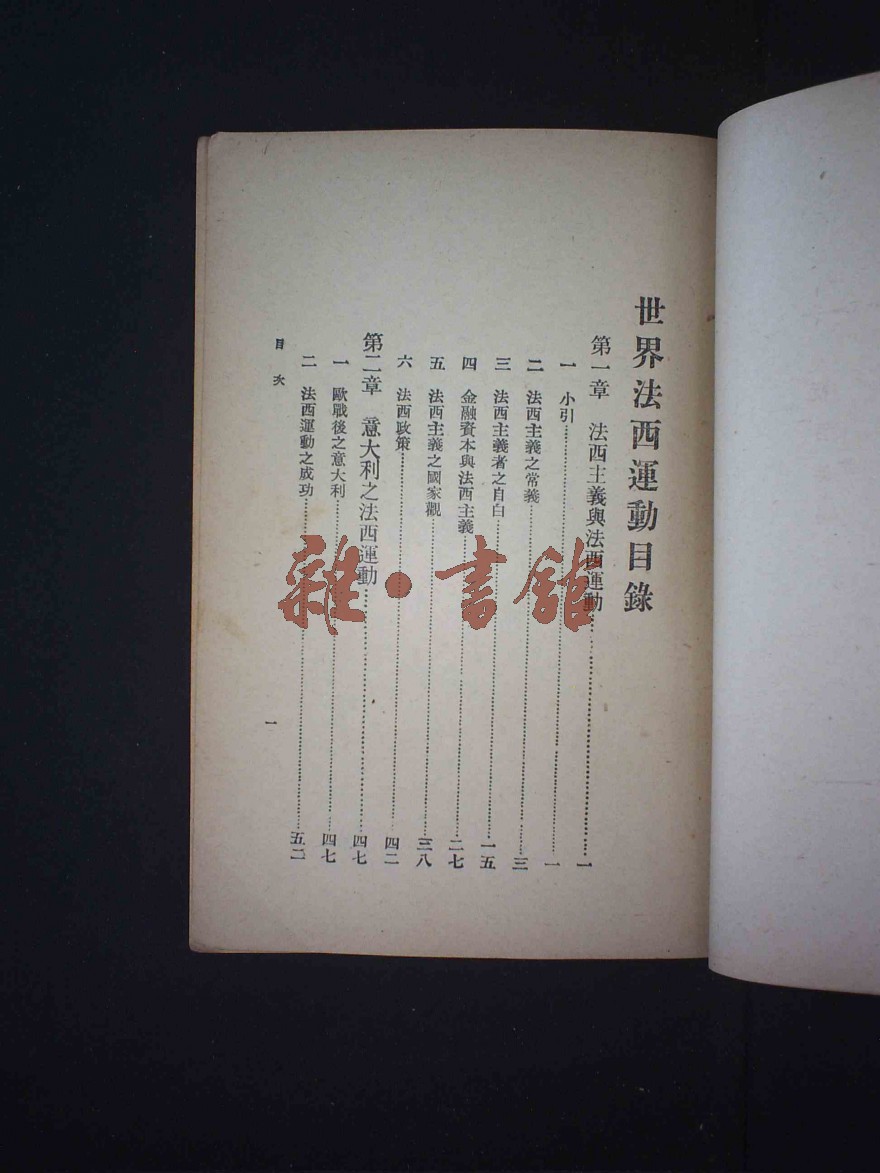 世界法西運動目錄
第一章 法西主義與法西運動……一
一 小引……一
二 法西主義之常義……三
三 法西主義者之自白……一五
四 金融資本與法西主義……二七
五 法西主義之國家觀……三八
六 法西政策……四二
第二章 意大利之法西運動……四七
一 歐戰後之意大利……四七
二 法西運動之成功……五二
目次
一
雜·書館